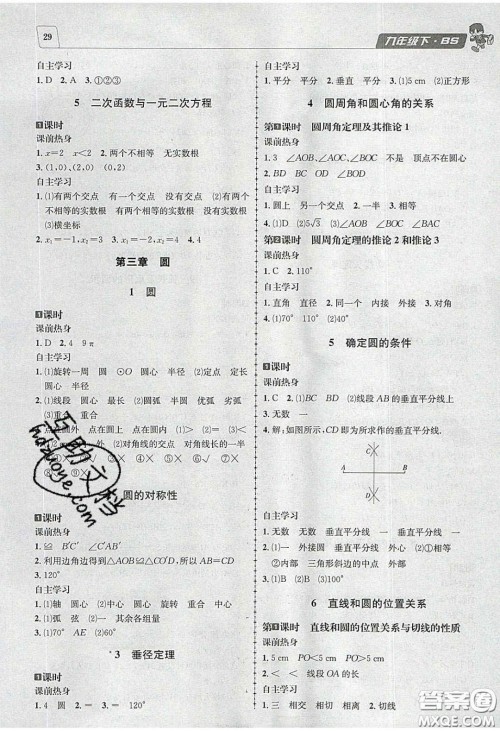 29
九年级下·BS
自主学习
1. D  2. A  3. ①②③
5 二次函数与一元二次方程
第1课时
课前热身
1. x=2  x<2  2. 两个不相等  无实数根
3. (1,0),(2,0)  (0,2)
自主学习
1. (1)有两个交点  有一个交点  没有交点  (2)有两个
不相等的实数根  有两个相等的实数根  没有实数根
(3)横坐标
2. x₁=-1,x₂=3  3. x₁=-4,x₂=0  4. 4
第三章 圆
1 圆
课前热身
1. D  2. 4  9π
自主学习
1. (1)旋转一周  圆  ⊙O  圆心  半径  (2)定点  定长
圆心  半径
2. (1)线段  圆心  最长  (2)圆弧  半圆  优弧  劣弧
(3)重合  重合
点在圆外  点在圆上  点在圆内
(2)对角线的交点  对角线长的一半
圆的对称性
第1课时
课前热身
1. ≌  B′C′  ∠C′AB′
2. 利用边角边得到△AOB≌△COD,所以AB=CD
3. 120°
自主学习
1. (1)轴  圆心  (2)中心  圆心  旋转  重合  中心
2. (1)弧  弦  (2)一  其余各组量
3. (1)=  =  (2)=  =  =
4. (1)70°  (2)AB=CD
3 垂径定理
课前热身
1. 4  圆  2. =  =  =  120°
自主学习
1. 平分  平分  2. 垂直  平分  3. (1)5 cm  (2)正方形
4 圆周角和圆心角的关系
第1课时 圆周角定理及其推论1
课前热身
1. 3  ∠AOB、∠AOC、∠BOC  不是  顶点不在圆心
2. BD  BC  OD  ∠BOD
自主学习
1. 圆上  另一个交点  2. 一半  3. 相等
4. (1)D  (2)5√3  (3)∠AOB  ∠BOC
第2课时 圆周角定理的推论2和推论3
课前热身
1. C  2. 110°
自主学习
1. 直角  直径  2. 四边形  内接  外接  3. 对角
4. (1)70°  (2)110°
5 确定圆的条件
第1课时
课前热身
1. C  2. (1)BC  BD  (2)线段AB的垂直平分线上
3. 无数  一
4. 解:如图所示,CD即为所求作的垂直平分线.
C
A
B
D
自主学习
1. 无数  无数  垂直平分线  一  垂直平分线
2. (1)一  外接圆  垂直平分线  外心
②内部  三角形斜边的中点  外部  相等
3. (1)B  (2)B  (3)D
6 直线和圆的位置关系
第1课时 直线和圆的位置关系与切线的性质
课前热身
1. 5 cm  PO<5 cm  PO>5 cm
2. <  <  线段OA的长
自主学习
1. 三  相交  相切  相离  2. 切线
互助文档
hdzuoye.com
答案圈
MXQE.COM